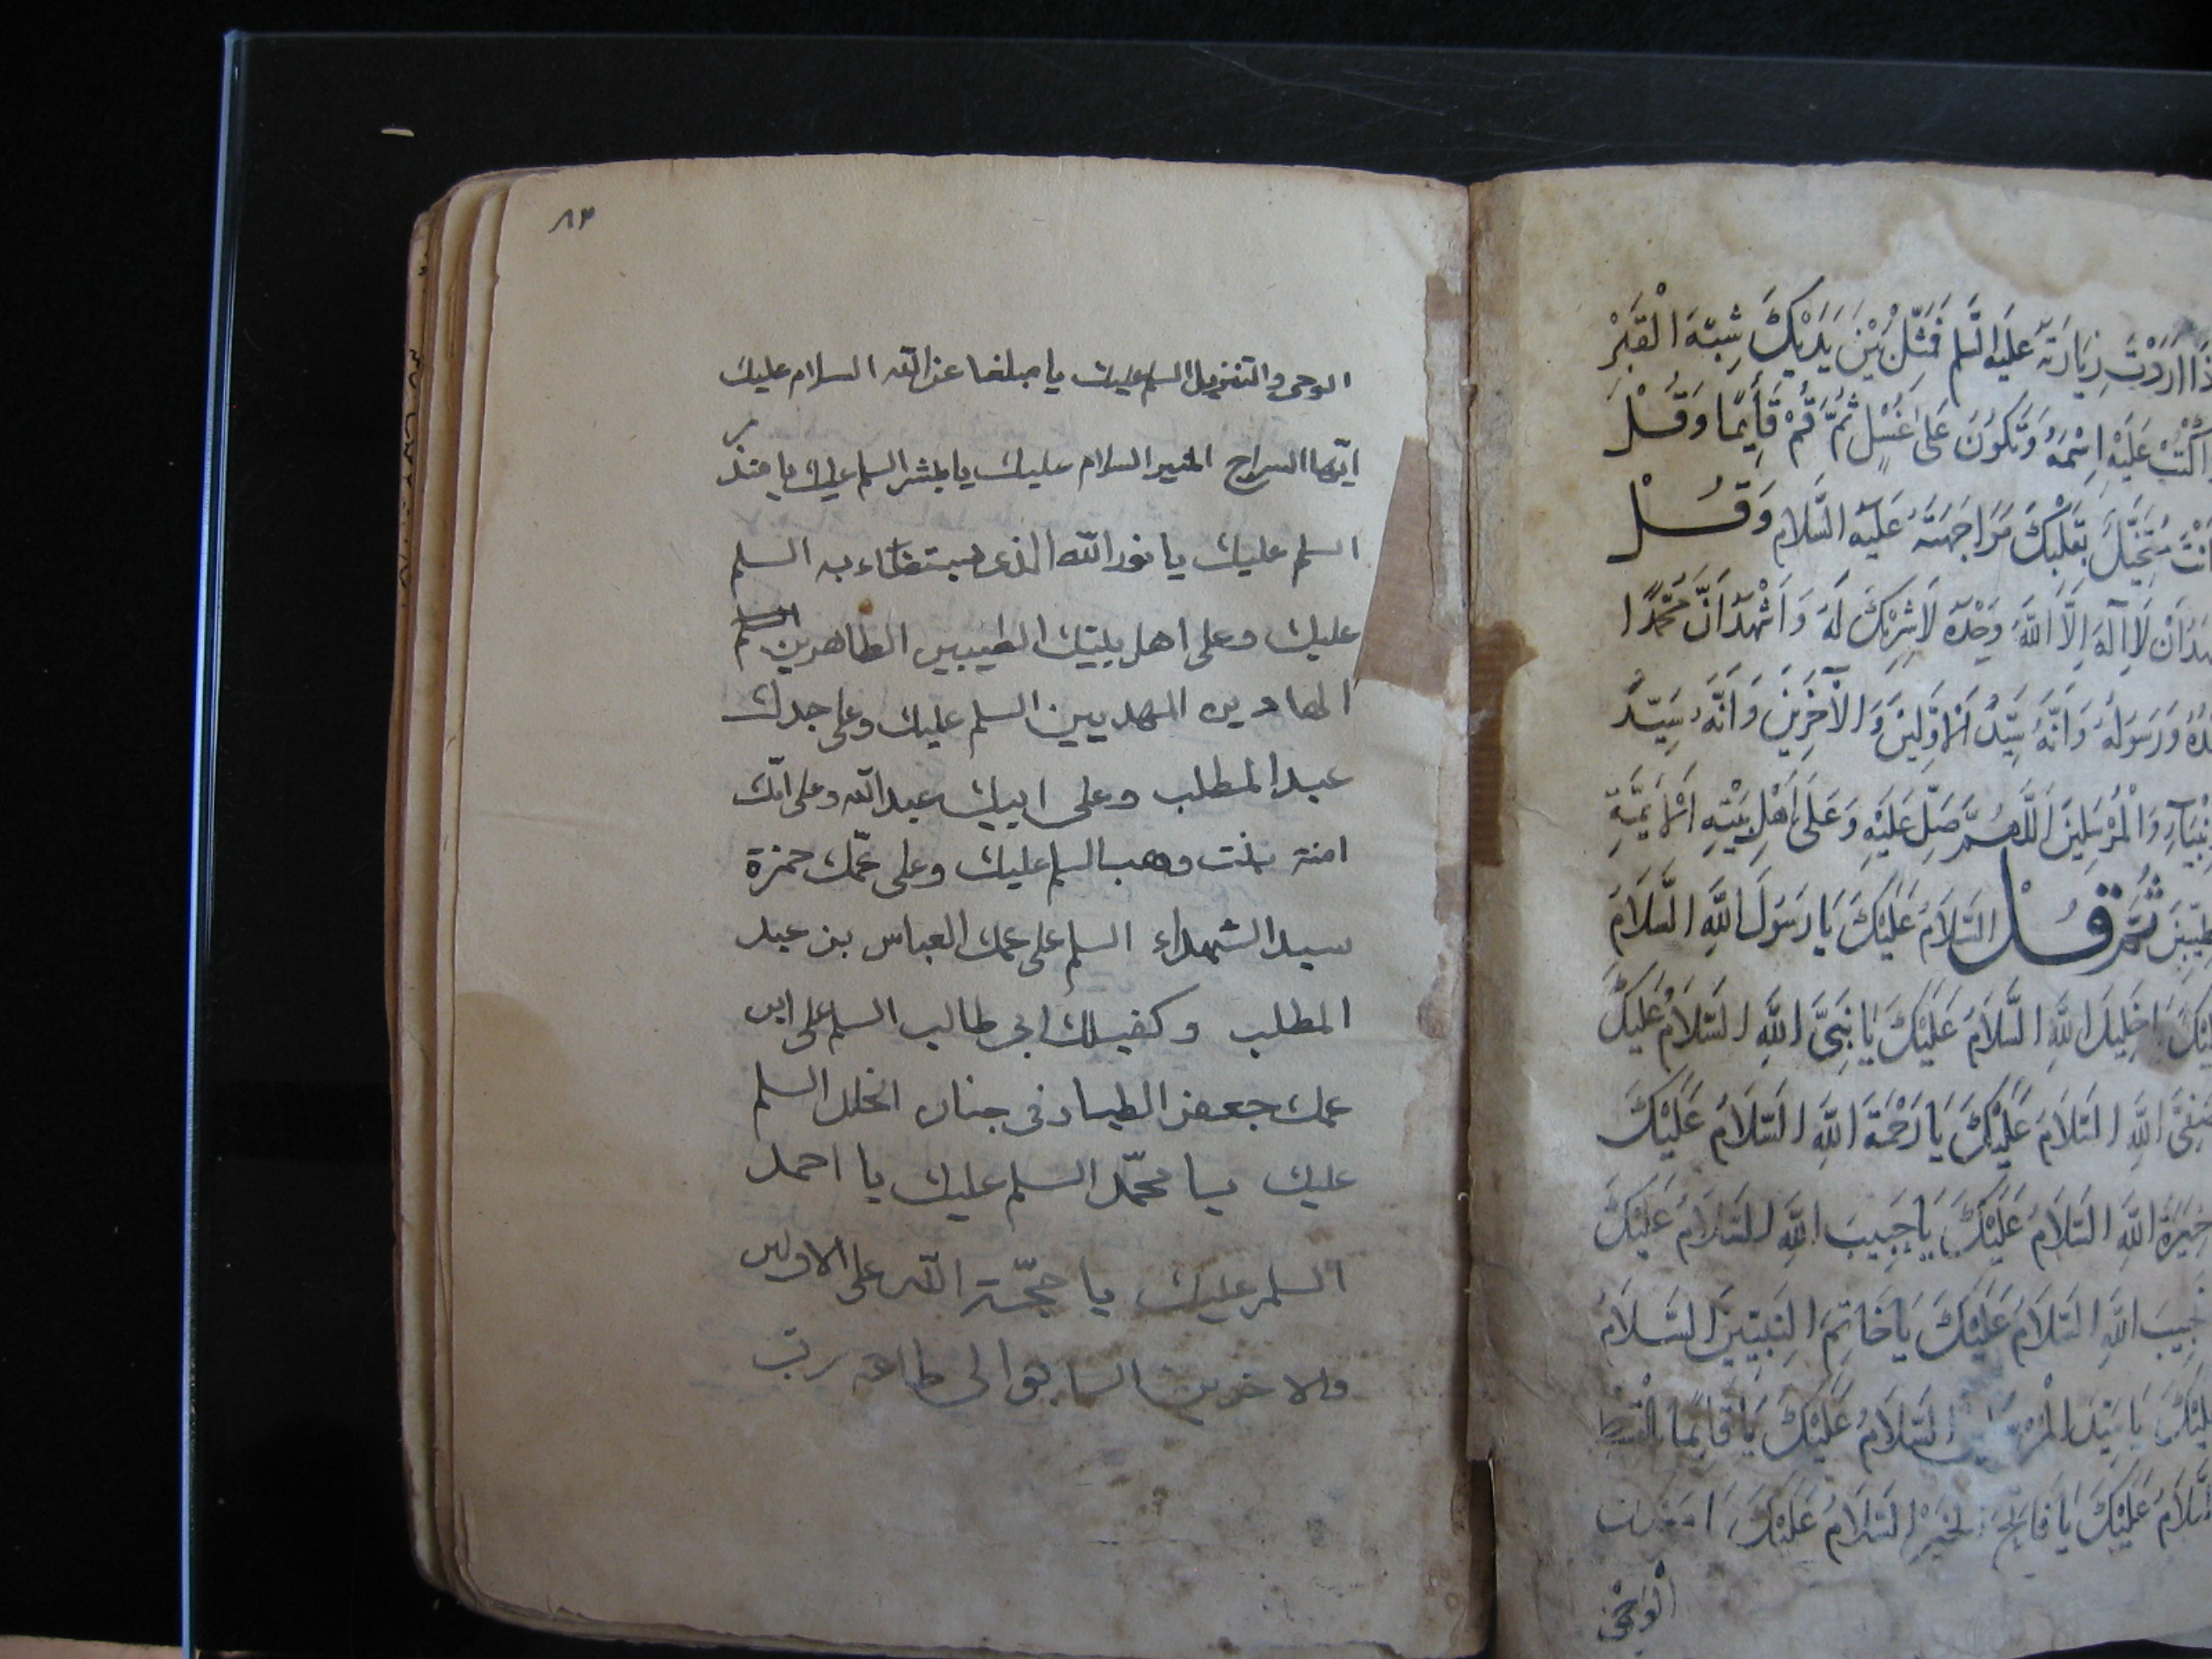 ذَا ارَدْتَ زِيَارَتَهُ عَلَيْهِ السَّلم فَمَثِّلْ بَيْنَ يَدَيْكَ شِبْهَ الْقَبْرِ
اكْتُبْ عَلَيْهِ اِسْمَهُ وَتَكُونَ عَلىٰ غُسْلٍ ثُمَّ قُمْ قَائِمًا وَقُلْ
انْتَ مُتَخَيِّلٌ بِقَلْبِكَ مُوَاجَهَتَهُ عَلَيْهِ السَّلَام وَقُلْ
هَدُ اَنْ لَا اِلٰهَ اِلَّا اللّٰهُ وَحْدَهُ لَا شَرِيْكَ لَهُ وَاَشْهَدُ اَنَّ مُحَمَّدًا
دُهُ وَرَسُولُهُ وَاَنَّهُ سَيِّدُ الْاَوَّلِينَ وَالْآخِرِينَ وَاَنَّهُ سَيِّدُ
نْبِيَآءِ وَالْمُرْسَلِينَ اَللّٰهُمَّ صَلِّ عَلَيْهِ وَعَلَى اَهْلِ بَيْتِهِ اَلْاَيِمَّةِ
طَيِّبِينَ ثُمَّ قُلْ السَّلَامُ عَلَيْكَ يَا رَسُولَ اللّٰهِ السَّلَامُ
لَيْكَ يَا خَلِيلَ اللّٰهِ السَّلَامُ عَلَيْكَ يَا نَبِيَّ اللّٰهِ السَّلَامُ عَلَيْكَ
صَفِيَّ اللّٰهِ السَّلَامُ عَلَيْكَ يَا رَحْمَةَ اللّٰهِ السَّلَامُ عَلَيْكَ
خِيَرَةَ اللّٰهِ السَّلَامُ عَلَيْكَ يَا حَبِيبَ اللّٰهِ السَّلَامُ عَلَيْكَ
اللّٰهِ السَّلَامُ عَلَيْكَ يَا خَاتِمَ النَّبِيِّينَ السَّلَامُ
لَيْكَ يَا سَيِّدَ الْمُرْسَلِينَ السَّلَامُ عَلَيْكَ يَا قَائِمًا بِالْقِسْطِ
السَّلَامُ عَلَيْكَ يَا فَاتِحَ الْخَيْرِ السَّلَامُ عَلَيْكَ يَا مَعْدِنَ
الْوَحْيِ
٨٣
الوحى والتنزيل السلم عليك يا مبلغا عن اللّه السلام عليك
ايّها السراج المنير السلام عليك يا مبشر السلم عليك يا منذر
السلم عليك يا نور اللّه الذى يستضاء به السلم
عليك وعلى اهل بيتك الطيبين الطاهرين
الهادين المهديين السلم عليك وعلى جدك
عبد المطلب وعلى ابيك عبد اللّه وعلى امّك
امنة بنت وهب السلم عليك وعلى عمّك حمزة
سيد الشهداء السلم على عمك العباس بن عبد
المطلب وكفيلك ابى طالب السلم على ابن
عمك جعفر الطيار فى جنان الخلد السلم
عليك يا محمّد السلم عليك يا احمد
السلم عليك يا حجّة اللّه على الاولين
والاخرين السابق الى طاعة رب